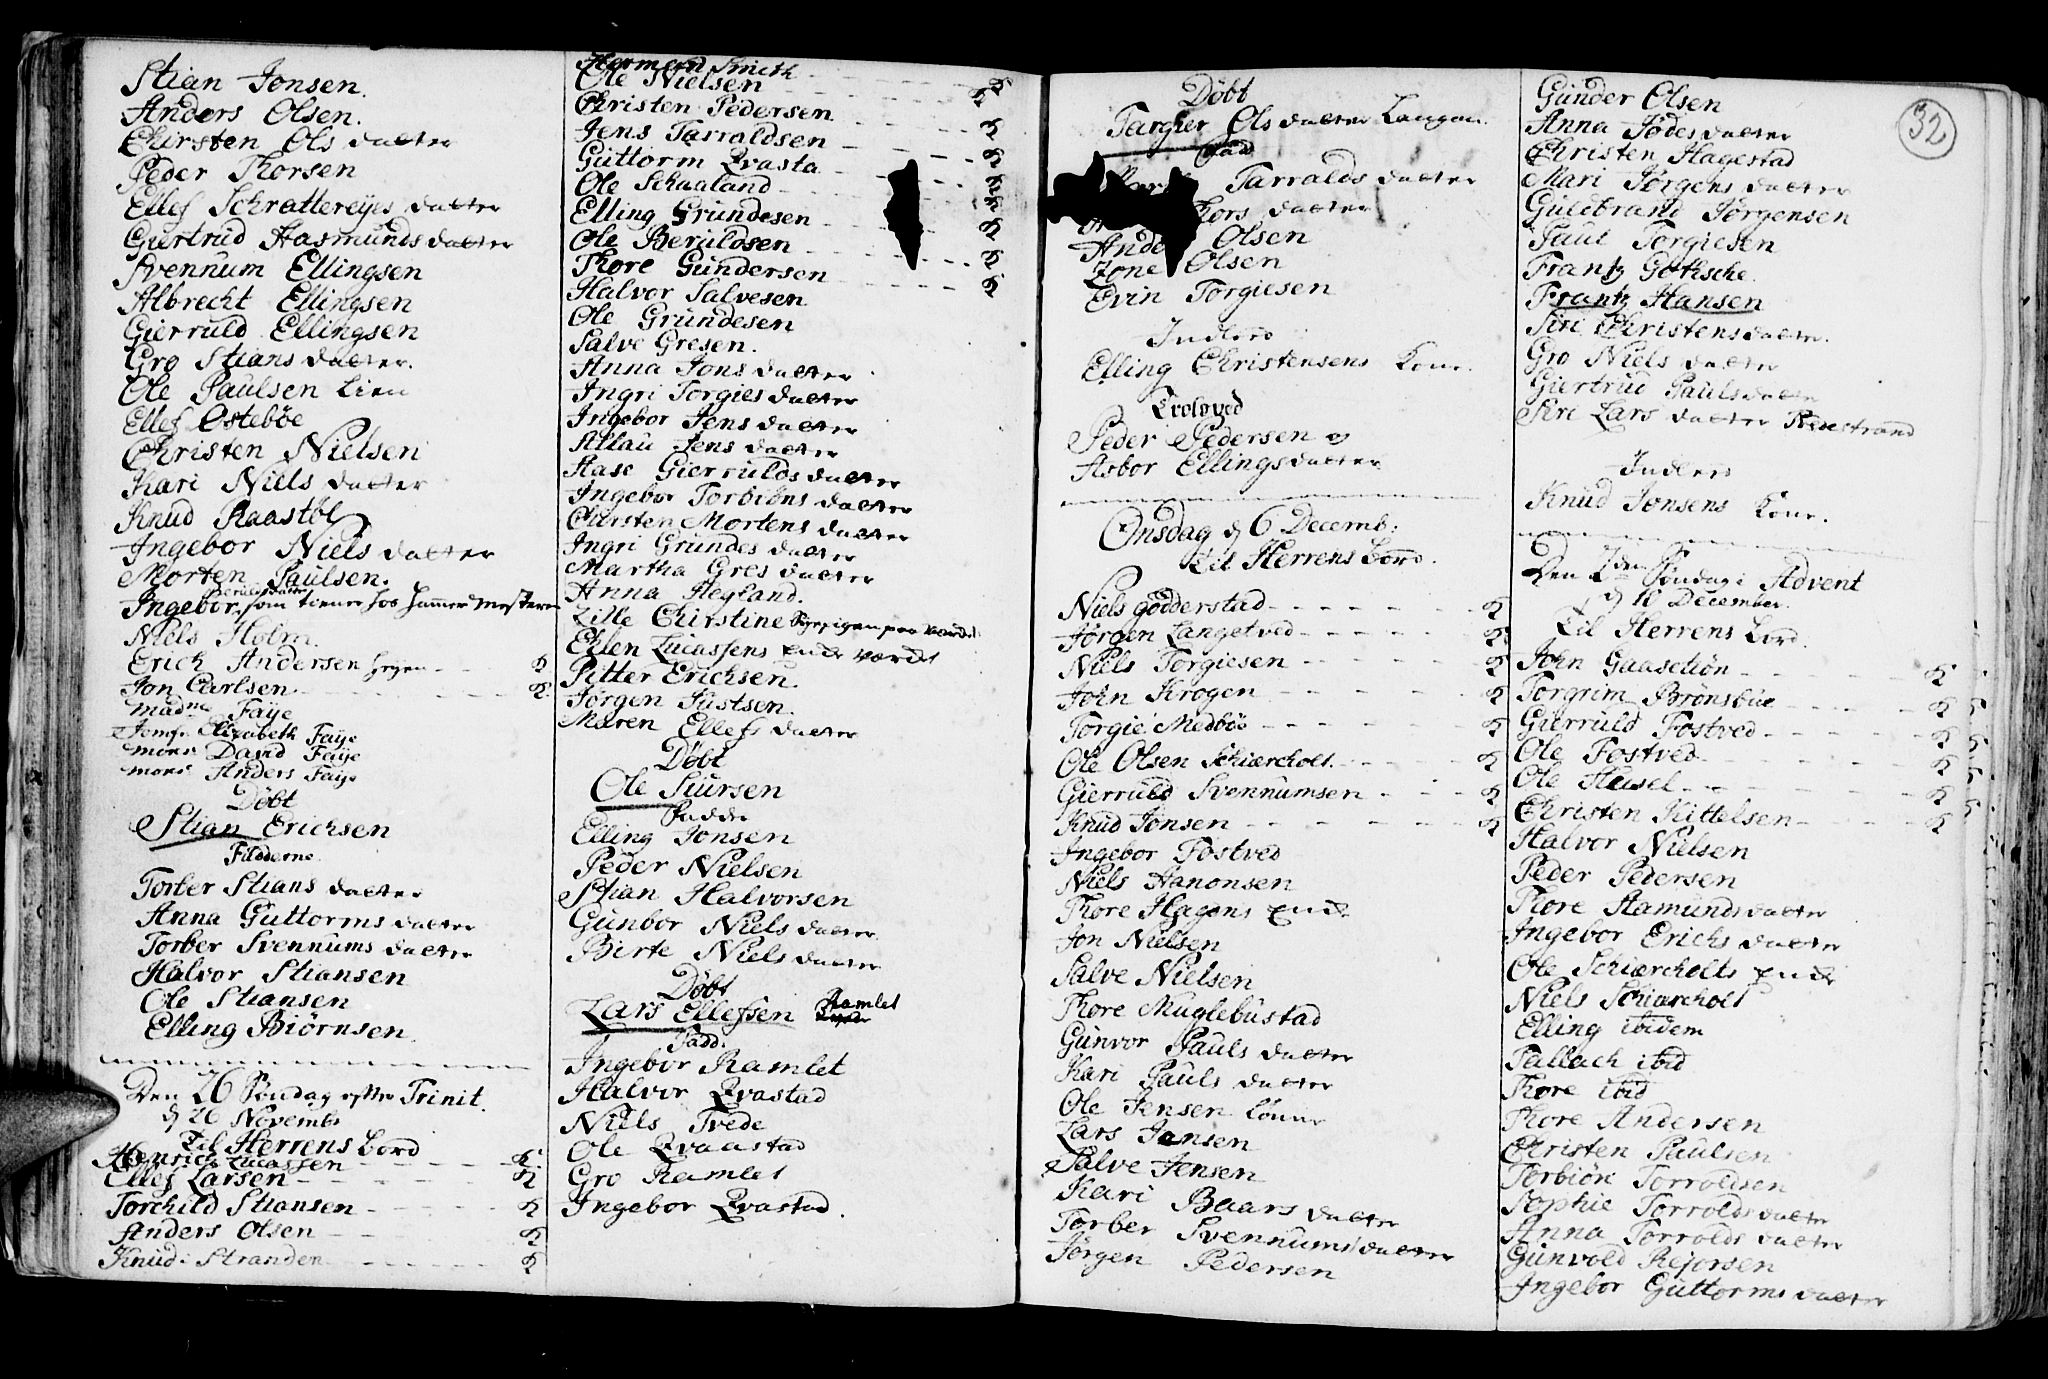 Stian Jonsen.
Anders Olsen.
Chirsten Ols datter
Peder Thorsen
Ellef Schrattereyes datter
Giertrud Aasmunds datter
Svennum Ellingsen
Albrecht Ellingsen
Gierruld Ellingsen
Gro Stians datter.
Ole Paulsen Lien
Ellef Ostebøe
Christen Nielsen
Kari Niels datter
Knud Raastøl
Ingebor Niels datter
Morten Paulsen.
Ingebor, som tiener hos Hammer Mesteren
Niels Holm.
Erich Andersen - - K
Jon Carlsen. - - - K
Madme Faÿe
Jomfr Elizabeth Faÿe
Mons. David Faÿe
Mons. Anders Faÿe
Døbt
Stian Erichsen
Fadderne
Torber Stians datter
Anna Guttorms datter
Torber Svennums datter
Halvor Stiansen
Ole Stiansen
Elling Biörnsen.
Den 26 Søndag efter Trinit.
d 26 Novembr
Til Herrens Bord
Henrich Lucassen - - - K
Ellef Larsen - - - K
Torchild Stiansen - - - K
Anders Olsen - - K
Knud Stranden - - - K
Herman Smith - - - K
Ole Nielsen - - - K
Christen Pedersen - - - K
Jens Tarraldsen - - - K
Guttorm Qvasta - - - K
Ole Schaaland - - - K
Elling Grundesen - - - K
Ole Beruldsen - - - K
Thore Gundersen - - - K
Halvor Salvesen
Ole Grundesen
Salve Gresen.
Anna Jons datter
Ingri Torgies datter
Ingebor Jens datter
Allau Jens datter
Aase Gierrulds datter
Ingebor Torbiöns datter
Chirsten Mortens datter
Ingri Grundes datter
Martha Gres datter
Anna Hegland.
Zille Chirstine
Ellen Lucassens Enke Værdt
Pitter Erichsen.
Jørgen Justsen.
Maren Ellefs datter
Døbt
Ole Siursen
Fadde
Elling Jonsen
Peder Nielsen
Stian Halvorsen
Gunbor Niels datter
Birte Niels datter
Døbt
Lars Ellefsen Ramlet
Fadd.
Ingebor Ramlet
Halvor Qvastad
Niels Tvede
Ole Qvaastad
Gro Ramlet
Ingebor Qvastad.
Døbt
Targier Ols datter Langen.
Fad
Tarralds datter
Thors datter
Anders Olsen
Zone Olsen
Evin Torgiesen
Indled
Elling Christensens Kone.
Troloved
Peder Pedersen og
Asbor Ellings datter
Onsdag d 6 Decemb:
Til Herrens Bord.
Niels Godderstad - - - K
Jørgen Langetved - - - K
Niels Torgiesen - - - K
John Krogen - - - K
Torgie Medbös - - - K
Ole Olsen Schiærcholt - - K
Gierruld Svennumsen - - - K
Knud Jonsen - - - K
Ingebor Fostved
Niels Aanonsen
Thore Hagens Enke
Jon Nielsen
Salve Nielsen
Thore Muglebustad
Gunvor Pauls datter
Kari Pauls datter
Ole Jensen
Lars Jansen
Salve Jensen
Kari Baars datter
Torber Svennums datter
Jørgen Pedersen
32
Gunder Olsen
Anna Jødes datter
Christen Hagestad
Mari Jørgens datter
Gulbrand Jørgensen
Paul Torgiesen
Frantz Gothsche.
Frantz Hansen
Siri Christens datter.
Gro Niels datter
Giertrud Pauls datter
Siri Lars datter Nedestrand
Indled
Knud Jonsens Kone.
Den 2den Søndag i Advent
d 10 December.
Til Herrens Bord
John Gaasetiön - - - K
Torgrim Brønsbue - - - K
Gierruld Fostved - - - K
Ole Fostved - - - K
Ole Heisel - - - K
Christen Kittelsen - - - K
Halvor Nielsen
Peder Pedersen
Thore Aamunds datter
Ingebor Erichs datter
Ole Schiærcholts Enke
Niels Schiærcholt
Elling ibidem
Tallach ibid
Thore ibid
Thore Andersen
Christen Paulsen
Torbiörn Torroldsen
Sophie Torrolds datter
Anna Torrolds datter
Gunvold Rejorsen
Ingebor Guttorms datter